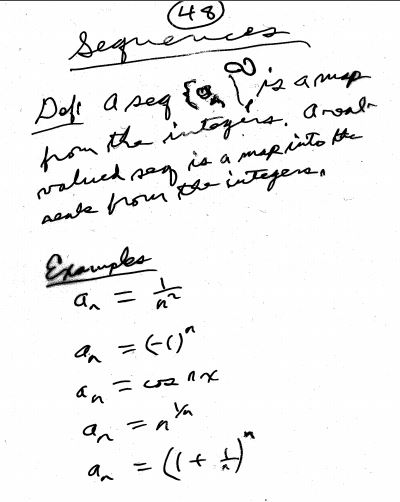 48
Sequences
Def: A seq {aₙ}₁^∞ is a map
from the integers. A real-
valued seq is a map into the
reals from the integers.
Examples
aₙ = 1/n²
aₙ = (-1)ⁿ
aₙ = cos nx
aₙ = n^(1/n)
aₙ = (1 + 1/n)ⁿ